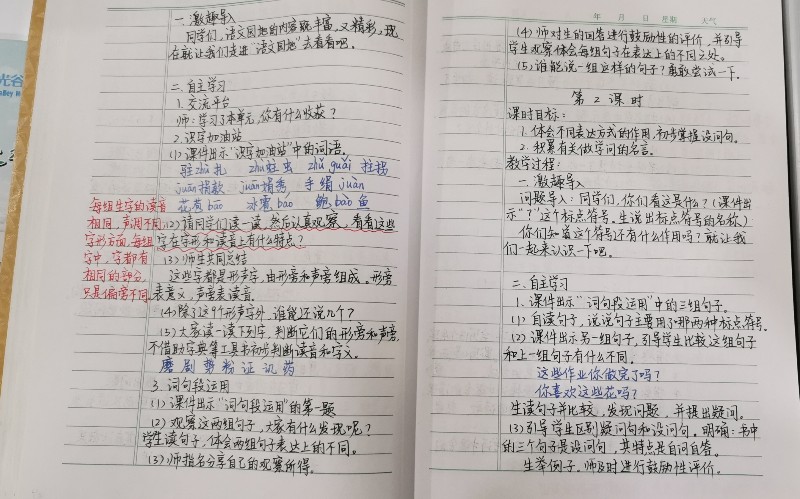 一、激趣导入
同学们，语文园地的内容既丰富，又精彩，现
在就让我们走进“语文园地”去看看吧。
二、自主学习
1. 交流平台
师：学习了本单元，你有什么收获？
2. 识字加油站
(1) 课件出示“识字加油站”中的词语。
驻zhù扎 zhù蛀虫 zhǔ guǎi 拄拐
juān捐款 juān娟秀 手绢 juàn
花苞 bāo 冰雹 báo 鲍 bào 鱼
(2) 请同学们读一读，然后认真观察，看看这些
字在字形和读音上有什么特点？
(3) 师生共同总结
这些字都是形声字，由形旁和声旁组成。形旁
表意义，声旁表读音。
每组生字的读音
相同，声调不同
字形方面，每组
字中，字都有
相同的部分，
只是偏旁不同。
(4) 除了这9个形声字外，谁能还说几个？
(5) 大家读一读下列字，判断它们的形旁和声旁，
不借助字典等工具书初步判断读音和字义。
磨 剧 势 粉 证 讥 药
3. 词句段运用
(1) 课件出示“词句段运用”的第一题
(2) 观察这两组句子，大家有什么发现呢？
学生读句子，体会两组句子表达上的不同。
(3) 师指名分享自己的观察所得。
年 月 日 星期 天气
(4) 师对生的回答进行鼓励性的评价，并引导
学生观察体会每组句子在表达上的不同之处。
(5) 谁能说一组这样的句子？勇敢尝试一下。
第 2 课 时
课时目标：
1. 体会不同表达方式的作用，初步掌握设问句。
2. 积累有关做学问的名言。
教学过程：
一、激趣导入
问题导入：同学们，你们看这是什么？（课件出
示“？”这个标点符号。生说出标点符号的名称）
你们知道这个符号还有什么作用吗？就让我
们一起来认识一下吧。
二、自主学习
1. 课件出示“词句段运用”中的三组句子。
(1) 自读句子，说说句子主要用了哪两种标点符号。
(2) 课件出示另一组句子，引导学生比较这组句子
和上一组句子有什么不同。
这些作业你做完了吗？
你喜欢这些花吗？
生读句子并比较，发现问题，并提出疑问。
(3) 引导学生区别疑问句和设问句。明确：书中
的三个句子是设问句，其特点是自问自答。
生举例子。师及时进行鼓励性评价。